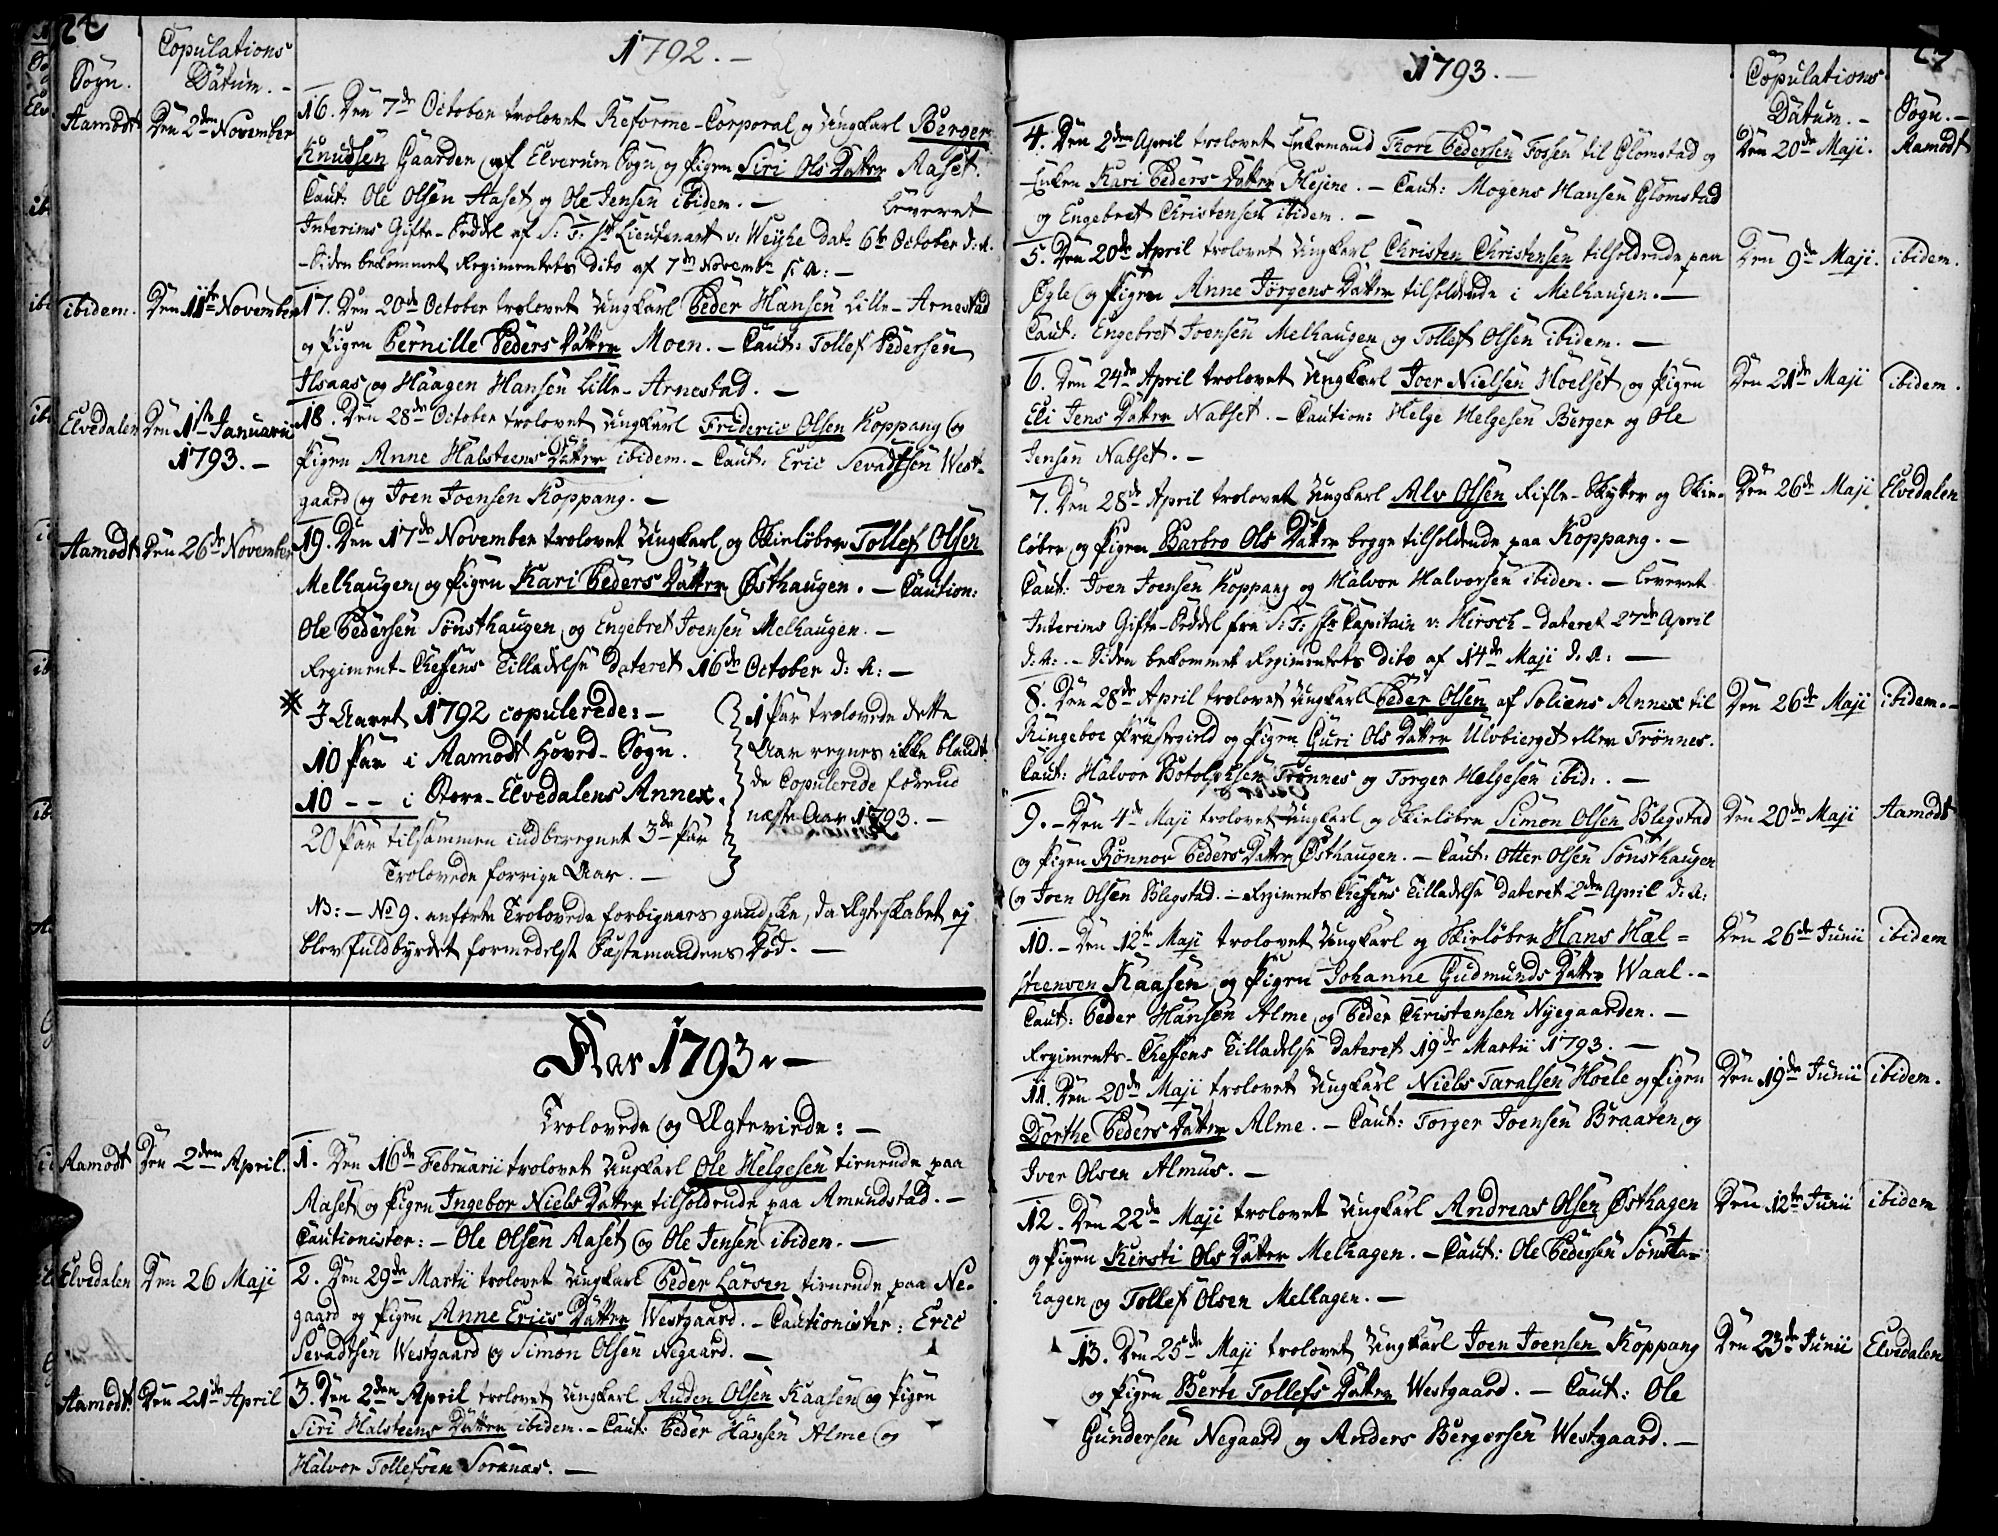 1792. –
Sogn.
Copulations
Datum. –
Aamodt
Den 2den November
16. Den 7de October trolovet Reforme-Corporal og Ungkarl Berger
Knudsen Gaarden af Elverum Sogn og Pigen Siri Ols Datter Aaset.
Caut: Ole Olsen Aaset og Ole Jensen ibidem. – Leveret
Interims Gifte-Seddel af S: T: Hr Lieutenant v: Weyhe dat: 6te October d: A:
– Siden bekommet Regimentets dito af 7de Novembr s: A: –
ibidem.
Den 11te November
17. Den 20de October trolovet Ungkarl Peder Hansen Lille-Arnestad
og Pigen Pernille Peders Datter Moen. – Caut: Tollef Pedersen
Ilsaas og Haagen Hansen Lille-Arnestad. –
Elvedalen
Den 1ste Januarii
1793. –
18. Den 28de October trolovet Ungkarl Frideric Olsen Koppang og
Pigen Anne Halsteens Datter ibidem. – Caut: Eric Sevadtsen West-
gaard og Joen Joensen Koppang. –
Aamodt
Den 26de November
19. Den 17de November trolovet Ungkarl og Skieløber Tollef Olsen
Melhaugen og Pigen Kari Peders Datter Østhaugen. – Caution:
Ole Pedersen Sønsthaugen og Engebret Joensen Melhaugen. –
Regiment-Chefens Tilladelse dateret 16de October d: A: –
I Aaret 1792 copulerede: –
10 Par i Aamodt Hoved-Sogn.
10 – – i Store-Elvedalens Annex.
20 Par tilsammen indberegnet 3de Par
Trolovede forrige Aar. –
1 Par trolovede dette
Aar regnes ikke blandt
de Copulerede førend
næste Aar 1793. –
NB: – No 9. anførte Trolovede forbigaaes gandske, da Ægteskabet ej
blev fuldbyrdet formedelst Fæstemandens Død. –
Aar 1793. –
Trolovede og Ægteviede: –
Aamodt
Den 2den April.
1. Den 16de Februarii trolovet Ungkarl Ole Helgesen tienende paa
Aaset og Pigen Ingebor Niels Datter tilholdende paa Amundstad. –
Cautionister: – Ole Olsen Aaset og Ole Jensen ibidem. –
Elvedalen
Den 26 Maji
2. Den 29de Martii trolovet Ungkarl Peder Larsen tienende paa Ne-
gaard og Pigen Anne Erics Datter Westgaard. – Cautionister: Eric
Sevadtsen Westgaard og Simon Olsen Negaard. –
Aamodt.
Den 21de April
3. Den 2den April trolovet Ungkarl Auden Olsen Kaasen og Pigen
Siri Halsteens Datter ibidem. – Caut: Peder Hansen Alme og
Halvor Tollefsen Sorknæs. –
1793. –
Copulations
Datum. –
Sogn. –
4. Den 2den April trolovet Enkemand Thore Pedersen Fossen til Glomstad og
Enken Kari Peders Datter Plejine. – Caut: Mogens Hansen Glomstad
og Engebret Christensen ibidem. –
Den 20de Maji.
Aamodt
5. Den 20de April trolovet Ungkarl Christen Christensen tilholdende paa
Egle og Pigen Anne Jørgens Datter tilholdende i Melhaugen. –
Caut: Engebret Joensen Melhaugen og Tollef Olsen ibidem. –
Den 9de Maji.
ibidem.
6. Den 24de April trolovet Ungkarl Joer Nielsen Hoelset og Pigen
Eli Jens Datter Nabset. – Caution: Helge Helgesen Berger og Ole
Jensen Nabset. –
Den 21de Maji
ibidem.
7. Den 28de April trolovet Ungkarl Alv Olsen Rifle-Skytter og Skie-
løber og Pigen Barbro Ols Datter begge tilholdende paa Koppang. –
Caut: Joen Joensen Koppang og Halvor Halvorsen ibidem. – Leveret
Interims Gifte-Seddel fra S: T: Hr Capitain v: Hirsch – dateret 27de April
d: A:. – Siden bekommet Regimentets dito af 14de Maji d: A: –
Den 26de Maji
Elvedalen
8. Den 28de April trolovet Ungkarl Peder Olsen af Soliens Annex til
Ringeboe Præstegield og Pigen Guri Ols Datter Ulvbierget eller Trønnes.
Caut: Halvor Botolphsen Trønnes og Torger Helgesen ibid: . –
Den 26de Maji
ibidem. –
9. – Den 4de Maji trolovet Ungkarl og Skieløber Simon Olsen Blegstad
og Pigen Rønnov Peders Datter Østhaugen. – Caut: Otter Olsen Sønsthaugen
og Joen Olsen Blegstad. – Regiments Chefens Tilladelse dateret 2den April d: A:
Den 20de Maji
Aamodt
10. – Den 12te Maji trolovet Ungkarl og Skieløber Hans Hal=
steensen Kaasen og Pigen Johanne Gudmunds Datter Waal. –
Caut: Peder Hansen Alme og Peder Christensen Nyegaarden. –
Regiments-Chefens Tilladelse dateret 19de Martii 1793. –
Den 26de Junii
ibidem
11. Den 20de Maji trolovet Ungkarl Niels Taralsen Hoele og Pigen
Dorthe Peders Datter Alme. – Caut: Torger Joensen Braaten og
Iver Olsen Almus. –
Den 19de Junii
ibidem.
12. Den 22de Maji trolovet Ungkarl Andreas Olsen Østhagen
og Pigen Kirsti Ols Datter Melhagen. – Caut: Ole Pedersen Sønst-
hagen og Tollef Olsen Melhagen. –
Den 12te Junii
ibidem
13. Den 25de Maji trolovet Ungkarl Joen Joensen Koppang
og Pigen Berte Tollefs Datter Westgaard. – Caut: Ole
Gundersen Negaard og Anders Bergersen Westgaard. –
Den 23de Junii
Elvedalen